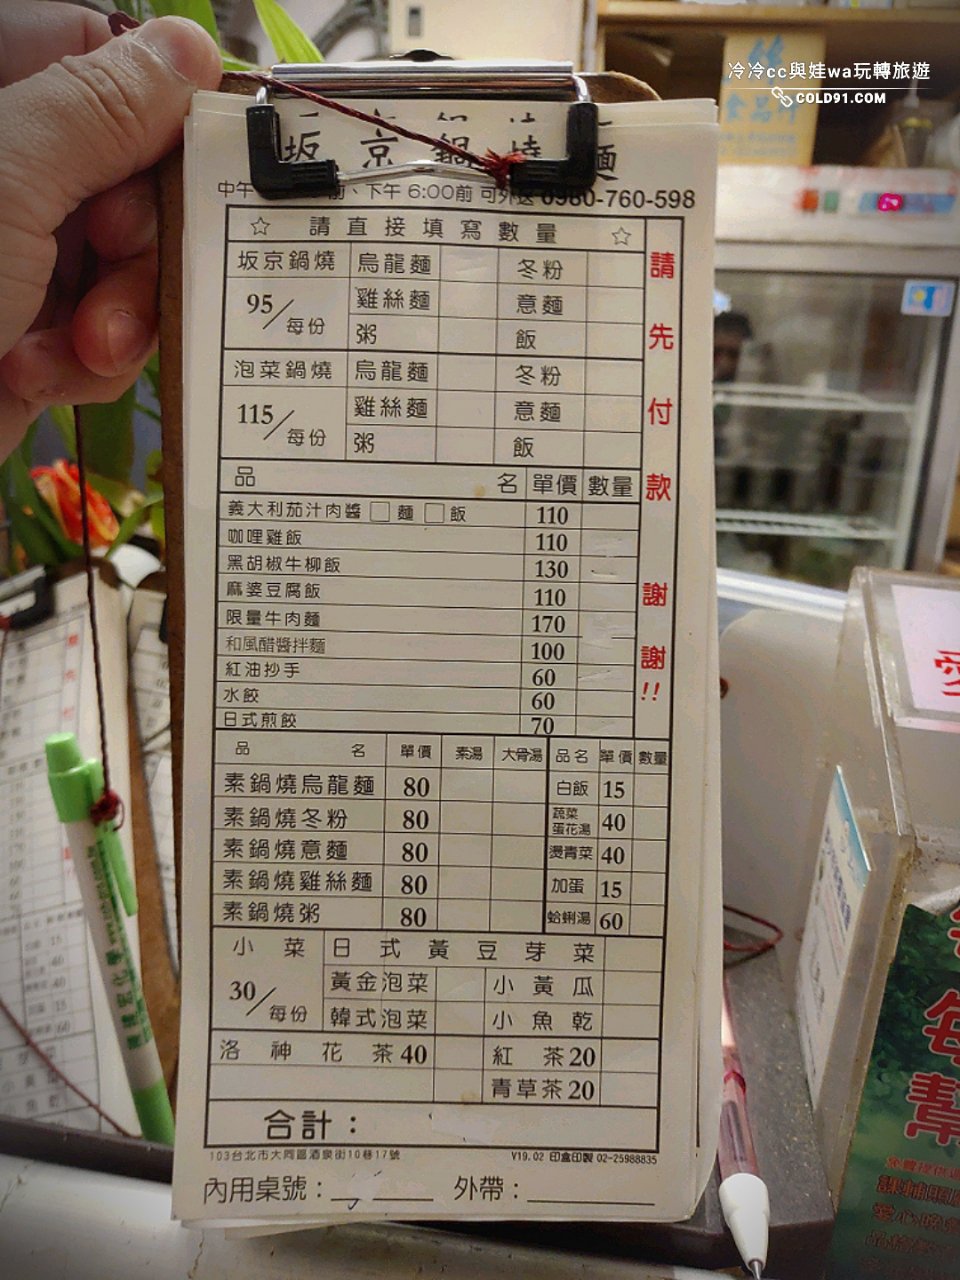 冷冷cc與娃wa玩轉旅遊
COLD91.COM
坂京鍋燒麵
中午 前、下午 6:00前 可外送 0980-760-598
☆ 請直接填寫數量 ☆
坂京鍋燒 烏龍麵 冬粉
95/每份 雞絲麵 意麵
粥 飯
泡菜鍋燒 烏龍麵 冬粉
115/每份 雞絲麵 意麵
粥 飯
請先付款謝謝!!
品名 單價 數量
義大利茄汁肉醬 □ 麵 □ 飯 110
咖哩雞飯 110
黑胡椒牛柳飯 130
麻婆豆腐飯 110
限量牛肉麵 170
和風醋醬拌麵 100
紅油抄手 60
水餃 60
日式煎餃 70
品名 單價 素湯 大骨湯
素鍋燒烏龍麵 80
素鍋燒冬粉 80
素鍋燒意麵 80
素鍋燒雞絲麵 80
素鍋燒粥 80
品名 單價 數量
白飯 15
蔬菜蛋花湯 40
燙青菜 40
加蛋 15
蛤蜊湯 60
小菜 日式黃豆芽菜
30/每份 黃金泡菜 小黃瓜
韓式泡菜 小魚乾
洛神花茶 40 紅茶 20
青草茶 20
合計：
103台北市大同區酒泉街10巷17號 V19.02 印盒印製 02-25988835
內用桌號： 外帶：
愛
每
幫